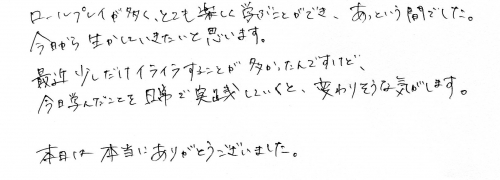 ロールプレイが多く、とても楽しく学ぶことができ、あっという間でした。
今日から生かしていきたいと思います。
最近少しだけイライラすることが多かったんですけど、
今日学んだことを日常で実践していくと、変わりそうな気がします。
本日は本当にありがとうございました。